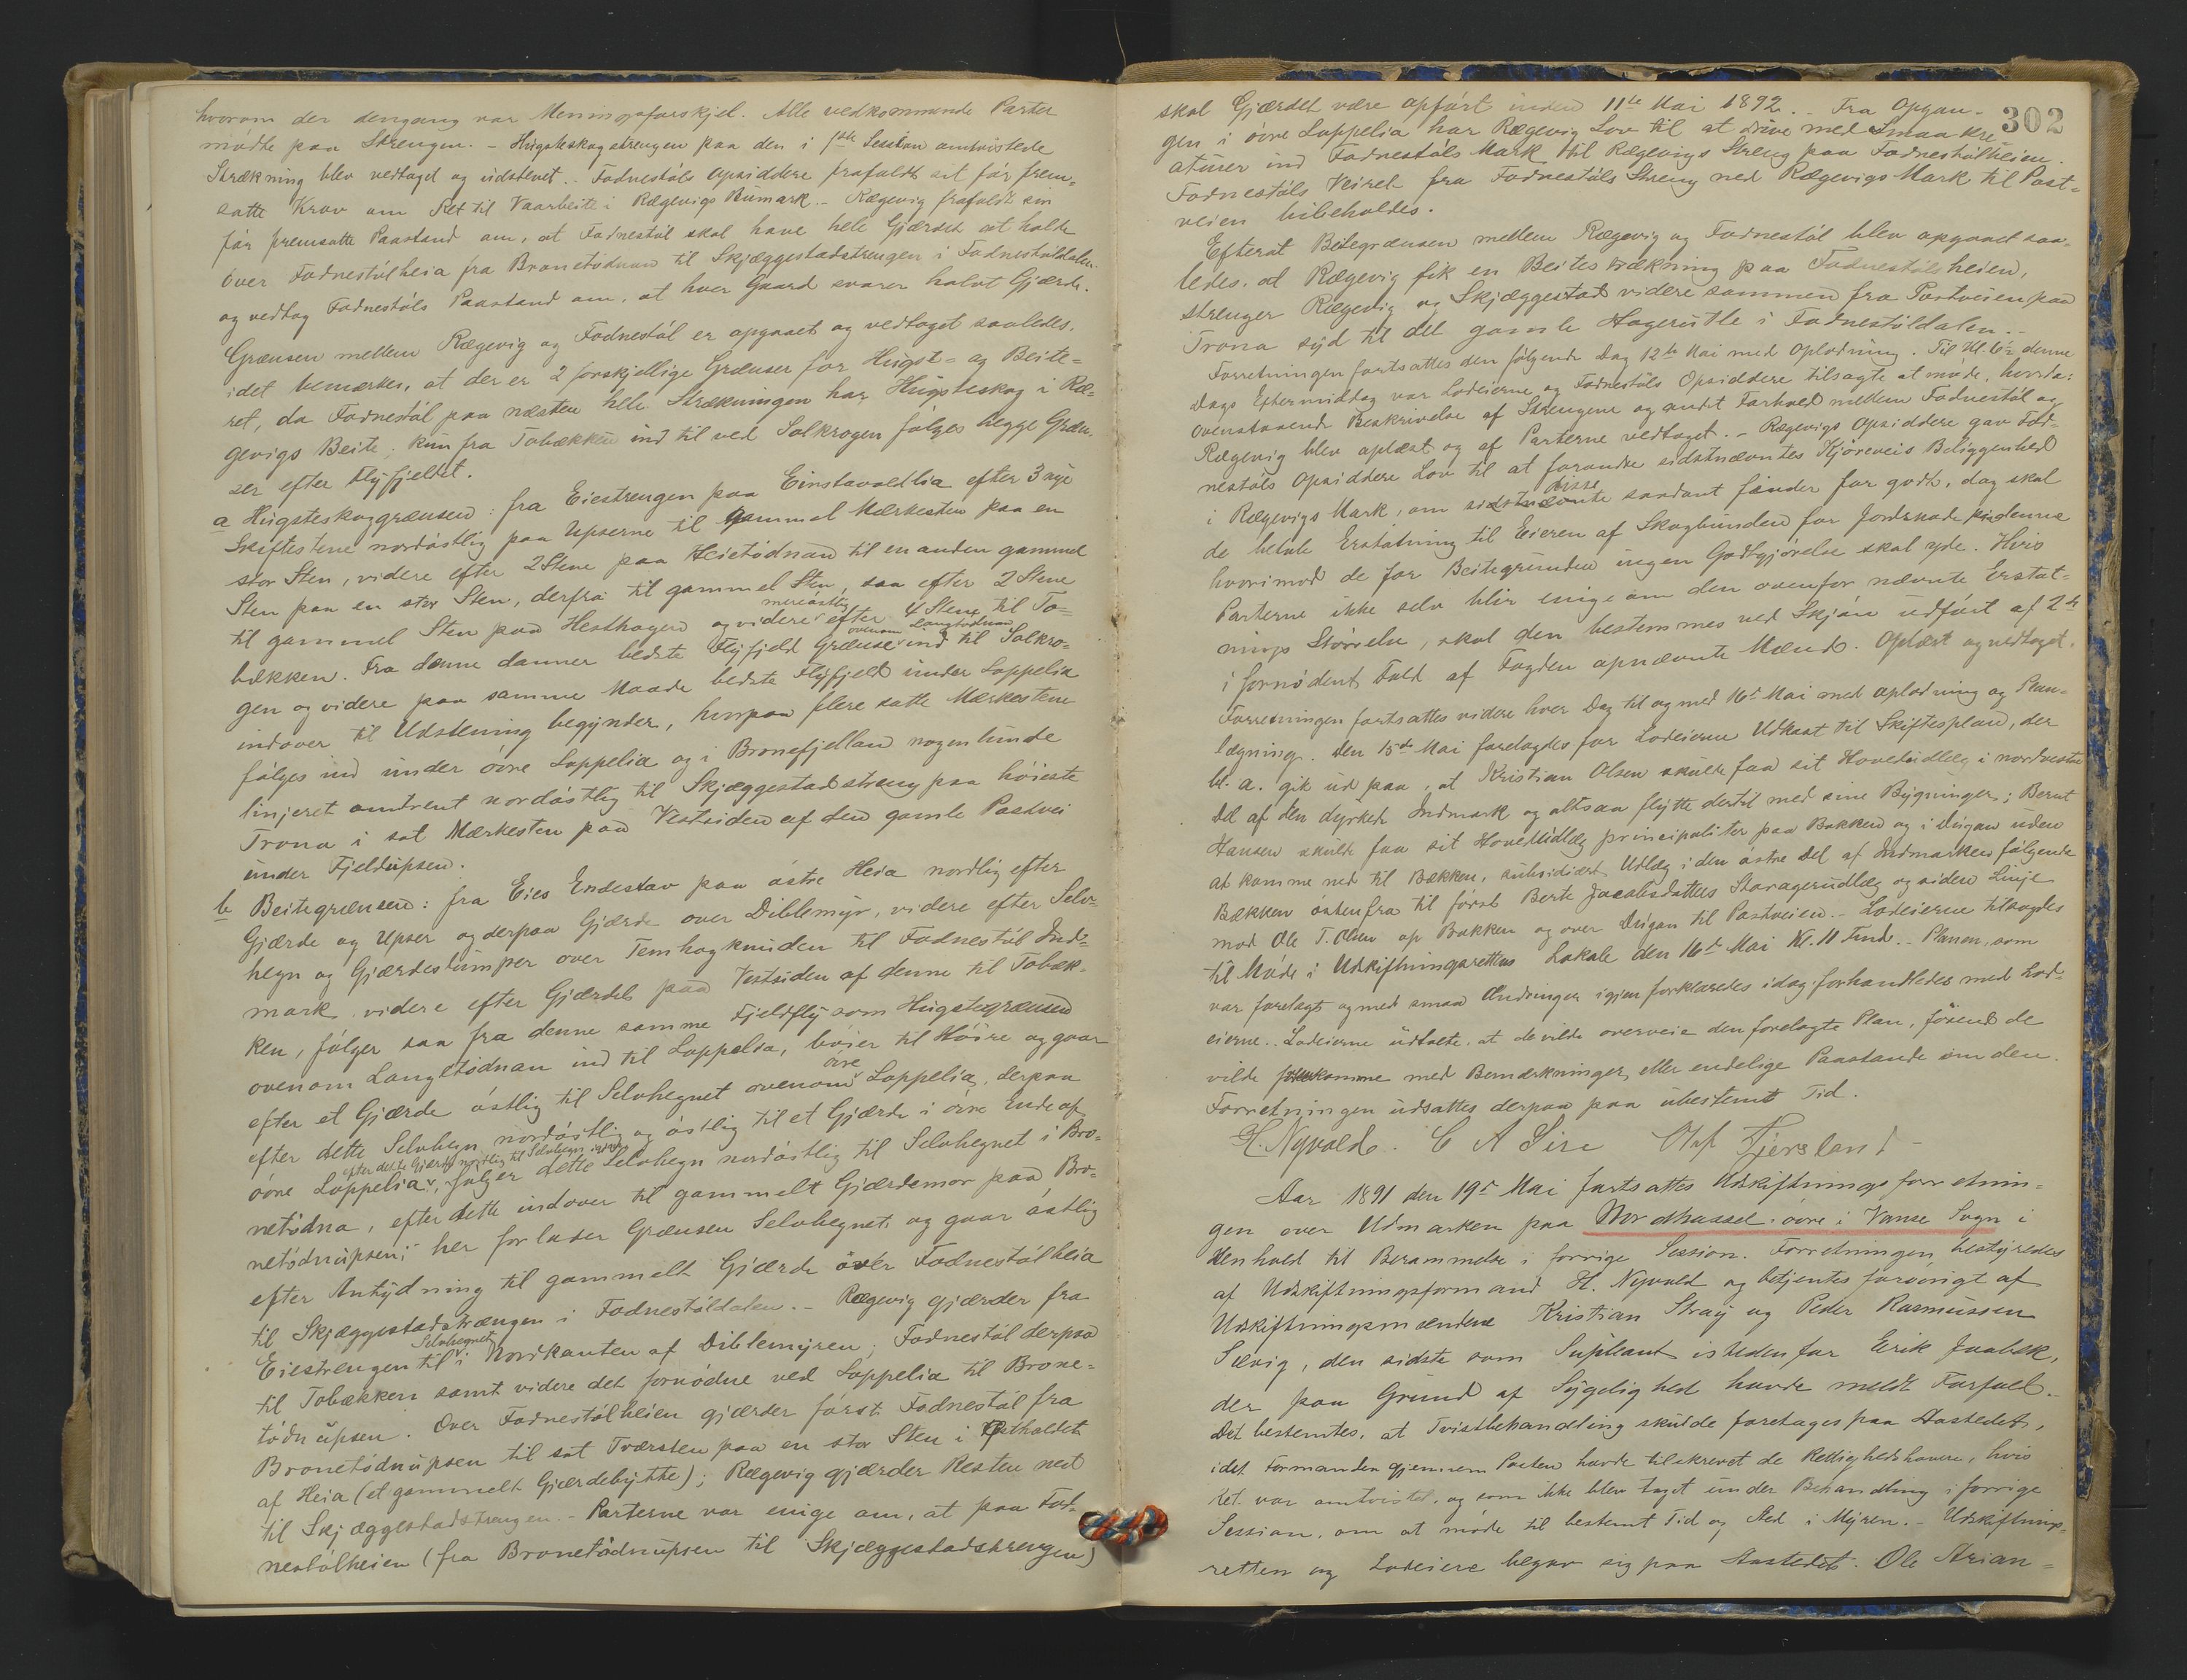 hvorom der dengang var Meningsforskjel. Alle vedkommende Parter
mødte paa Strengen. – Hugsteskogstrengen paa den i 1ste Session omtvistede
Strækning blev vedtaget og udstenet. – Fodnestøls Opsiddere frafaldt sit før frem-
satte Krav om Ret til Vaarbeite i Rægevigs Bumark. – Rægevig frafaldt sin
før fremsatte Paastand om, at Fodnestøl skal have hele Gjærdet at holde
over Fodnestølheia fra Bronetødnan til Skjæggestadstrengen i Fodnestøldalen
og vedtog Fodnestøls Paastand om, at hver Gaard svarer halvt Gjærde.
Grænsen mellem Rægevig og Fodnestøl er opgaaet og vedtaget saaledes,
idet bemærkes, at der er 2 forskjellige Grænser for Hugst= og Beite=
ret, da Fodnestøl paa næsten hele Strækningen har Hugsteskog i Ræ-
gevigs Beite; kun fra Tobækken ind til ved Solkrogen følges begge Græn-
ser efter Flyfjeldet.
a Hugsteskoggrænsen: fra Eiestrengen paa Einstavoldlia efter 3 nye
Skiftestene nordøstlig paa Upserne til gammel Mærkesten paa en
stor Sten, videre efter 2 Stene paa Heietødnan til en anden gammel
Sten paa en stor Sten, derfra til gammel Sten, saa efter 2 Stene
til gammel Sten paa Hesthagen og videre mereøstlig efter 4 Stene til To=
bækken. Fra denne danner bedste Flyfjeld Grænse ovenom Langtødnan ind til Solkro=
gen og videre paa samme Maade bedste Flyfjeld under Loppelia
indover til Udstening begynder, hvorpaa flere satte Mærkestene
følges ind under øvre Loppelia og i Bronefjellan nogenlunde
linjeret omtrent nordøstlig til Skjæggestadstreng paa høieste
Trona i sat Mærkesten paa Vestsiden af den gamle Postvei
under Fjeldupsen.
b Beitegrænsen: fra Eies Endestav paa østre Heia nordlig efter
Gjærde og Upser og derpaa Gjærde over Diblemyr, videre efter Selv-
hegn og Gjærdeslumper over Temhogkniden til Fodnestøl Ind=
mark videre efter Gjærdet paa Vestsiden af denne til Tobæk-
ken, følger saa fra denne samme Fjeldfly som Hugstegrænsen
ovenom Langtødnan ind til Loppelia, bøier til Høire og gaar
efter et Gjærde østlig til Selvhegnet ovenom øvre Loppelia, derpaa
efter dette Selvhegn nordøstlig og østlig til et Gjærde i øvre Ende af
øvre Loppelia, efter dette Gjærde nordlig til Selvhegn indre følger dette Selvhegn nordøstlig til Selvhegnet i Bro-
netødna, efter dette indover til gammelt Gjærdemor paa Bro-
netødnupsen; her forlader Grænsen Selvhegnet og gaar østlig
efter Antydning til gammelt Gjærde over Fodnestølheia
til Skjæggestadstrængen i Fodnestøldalen. – Rægevig gjærder fra
Eiestrengen til Selvhegnet i Nordkanten af Diblemyren, Fodnestøl derpaa
til Tobækken samt videre det fornødne ved Loppelia til Brone=
tødnupsen. Over Fodnestølheien gjærder først Fodnestøl fra
Bronetødnupsen til sat Tværsten paa en stor Sten i
af Heia (et gammelt Gjærdebytte); Rægevig gjærder Resten ned
til Skjæggestadstrengen. – Parterne var enige om, at paa Fod-
nestølheien (fra Bronetødnupsen til Skjæggestadstrengen)
302
skal Gjærdet være opført inden 11te Mai 1892. – Fra Opgan-
gen i øvre Loppelia har Rægevig Lov til at drive med Smaakre
aturer ind Fodnestøls Mark til Rægevigs Streng paa Fodnestølheien.
Fodnestøls Veiret fra Fodnestøls Streng ned Rægevigs Mark til Post=
veien bibeholdes.
Efterat Beitegrænsen mellem Rægevig og Fodnestøl blev opgaaet saa-
ledes, at Rægevig fik en Beitestrækning paa Fodnestølsheien,
strenger Rægevig og Skjæggestad videre sammen fra Postveien paa
Trona syd til det gamle Hagerutle i Fodnestøldalen. –
Forretningen fortsattes den følgende Dag 12te Mai med Oplodning. Til Kl. 6½ denne
Dags Eftermiddag var Lodeierne og Fodnestøls Opsiddere tilsagte at møde, hvorda:
ovenstaaende Beskrivelse af Strengene og andet Forhold mellem Fodnestøl og
Rægevig blev oplæst og af Parterne vedtaget. – Rægevigs Opsiddere gav Fod-
nestøls Opsiddere Lov til at forandre sidstnævntes Kjøreveis Beliggenhed
i Rægevigs Mark, om sidstnævnte disse saadant finder for godt, dog skal
de betale Erstatning til Eieren af Skogbunden for Jordskade paa denne
hvorimod de for Beitegrunden ingen Godtgjørelse skal yde. Hvis
Parterne ikke selv blir enige om den ovenfor nævnte Erstat-
nings Størrelse, skal den bestemmes ved Skjøn udført af 2de
i fornødent Fald af Fogden opnævnte Mænd. Oplæst og vedtaget.
Forretningen fortsattes videre hver Dag til og med 16de Mai med oplodning og Plan-
lægning. Den 15de Mai forelagdes for Lodeierne Udkast til Skifteplan, der
bl. a. gik ud paa, at Kristian Olsen skulde faa sit Hovedudlæg i nordvestre
Del af den dyrkede Indmark og altsaa flytte dertil med sine Bygninger; Bernt
Hansen skulde faa sit Hovedudlæg principaliter paa Bakken og i Augan uden
at komme ned til Bækken, subsidiært Udlæg i den østre Del af Indmarken følgende
Bækken østenfra til først Berte Jacobsdatters Storagerudlæg og siden Linje
mod Ole T. Olsen op Bakken og over Augan til Postveien. – Lodeierne tilsagdes
til Møde i Udskiftningsrettens Lokale den 16de Mai Kl. 11 Fmd. – Planen, som
var forelagt og med smaa Ændringer igjen forklaredes idag forhandledes med Lod-
eierne. Lodeierne udtalte, at de vilde overveie den forelagte Plan, førend de
vilde komme med Bemærkninger eller endelige Paastande om den.
Forretningen udsattes derpaa paa ubestemt Tid.
H. Nyvold. C A Sire Olaf Fjersland –
Aar 1891 den 19de Mai fortsattes Udskiftningsforretnin-
gen over Udmarken paa Nordhassel øvre i Vanse Sogn i
Henhold til Berammelse i forrige Session. Forretningen bestyredes
af Udskiftningsformand H. Nyvold og betjentes forøvrigt af
Udskiftningsmændene Kristian Stray og Peder Rasmussen
Sævig, den sidste som Supleant istedenfor Erik Jaabæk,
der paa Grund af Sygelighed havde meldt Forfald. –
Det bestemtes, at Tvistbehandling skulde foretages paa Aastedet,
idet Formanden gjennem Posten havde tilskrevet de Rettighedshavere, hvis
Ret var omtvistet, og som ikke blev taget under Behandling i forrige
Session, om at møde til bestemt Tid og Sted i Myren. – Udskiftnings-
retten og Lodeiere begav sig paa Aastedet. Ole Arian=